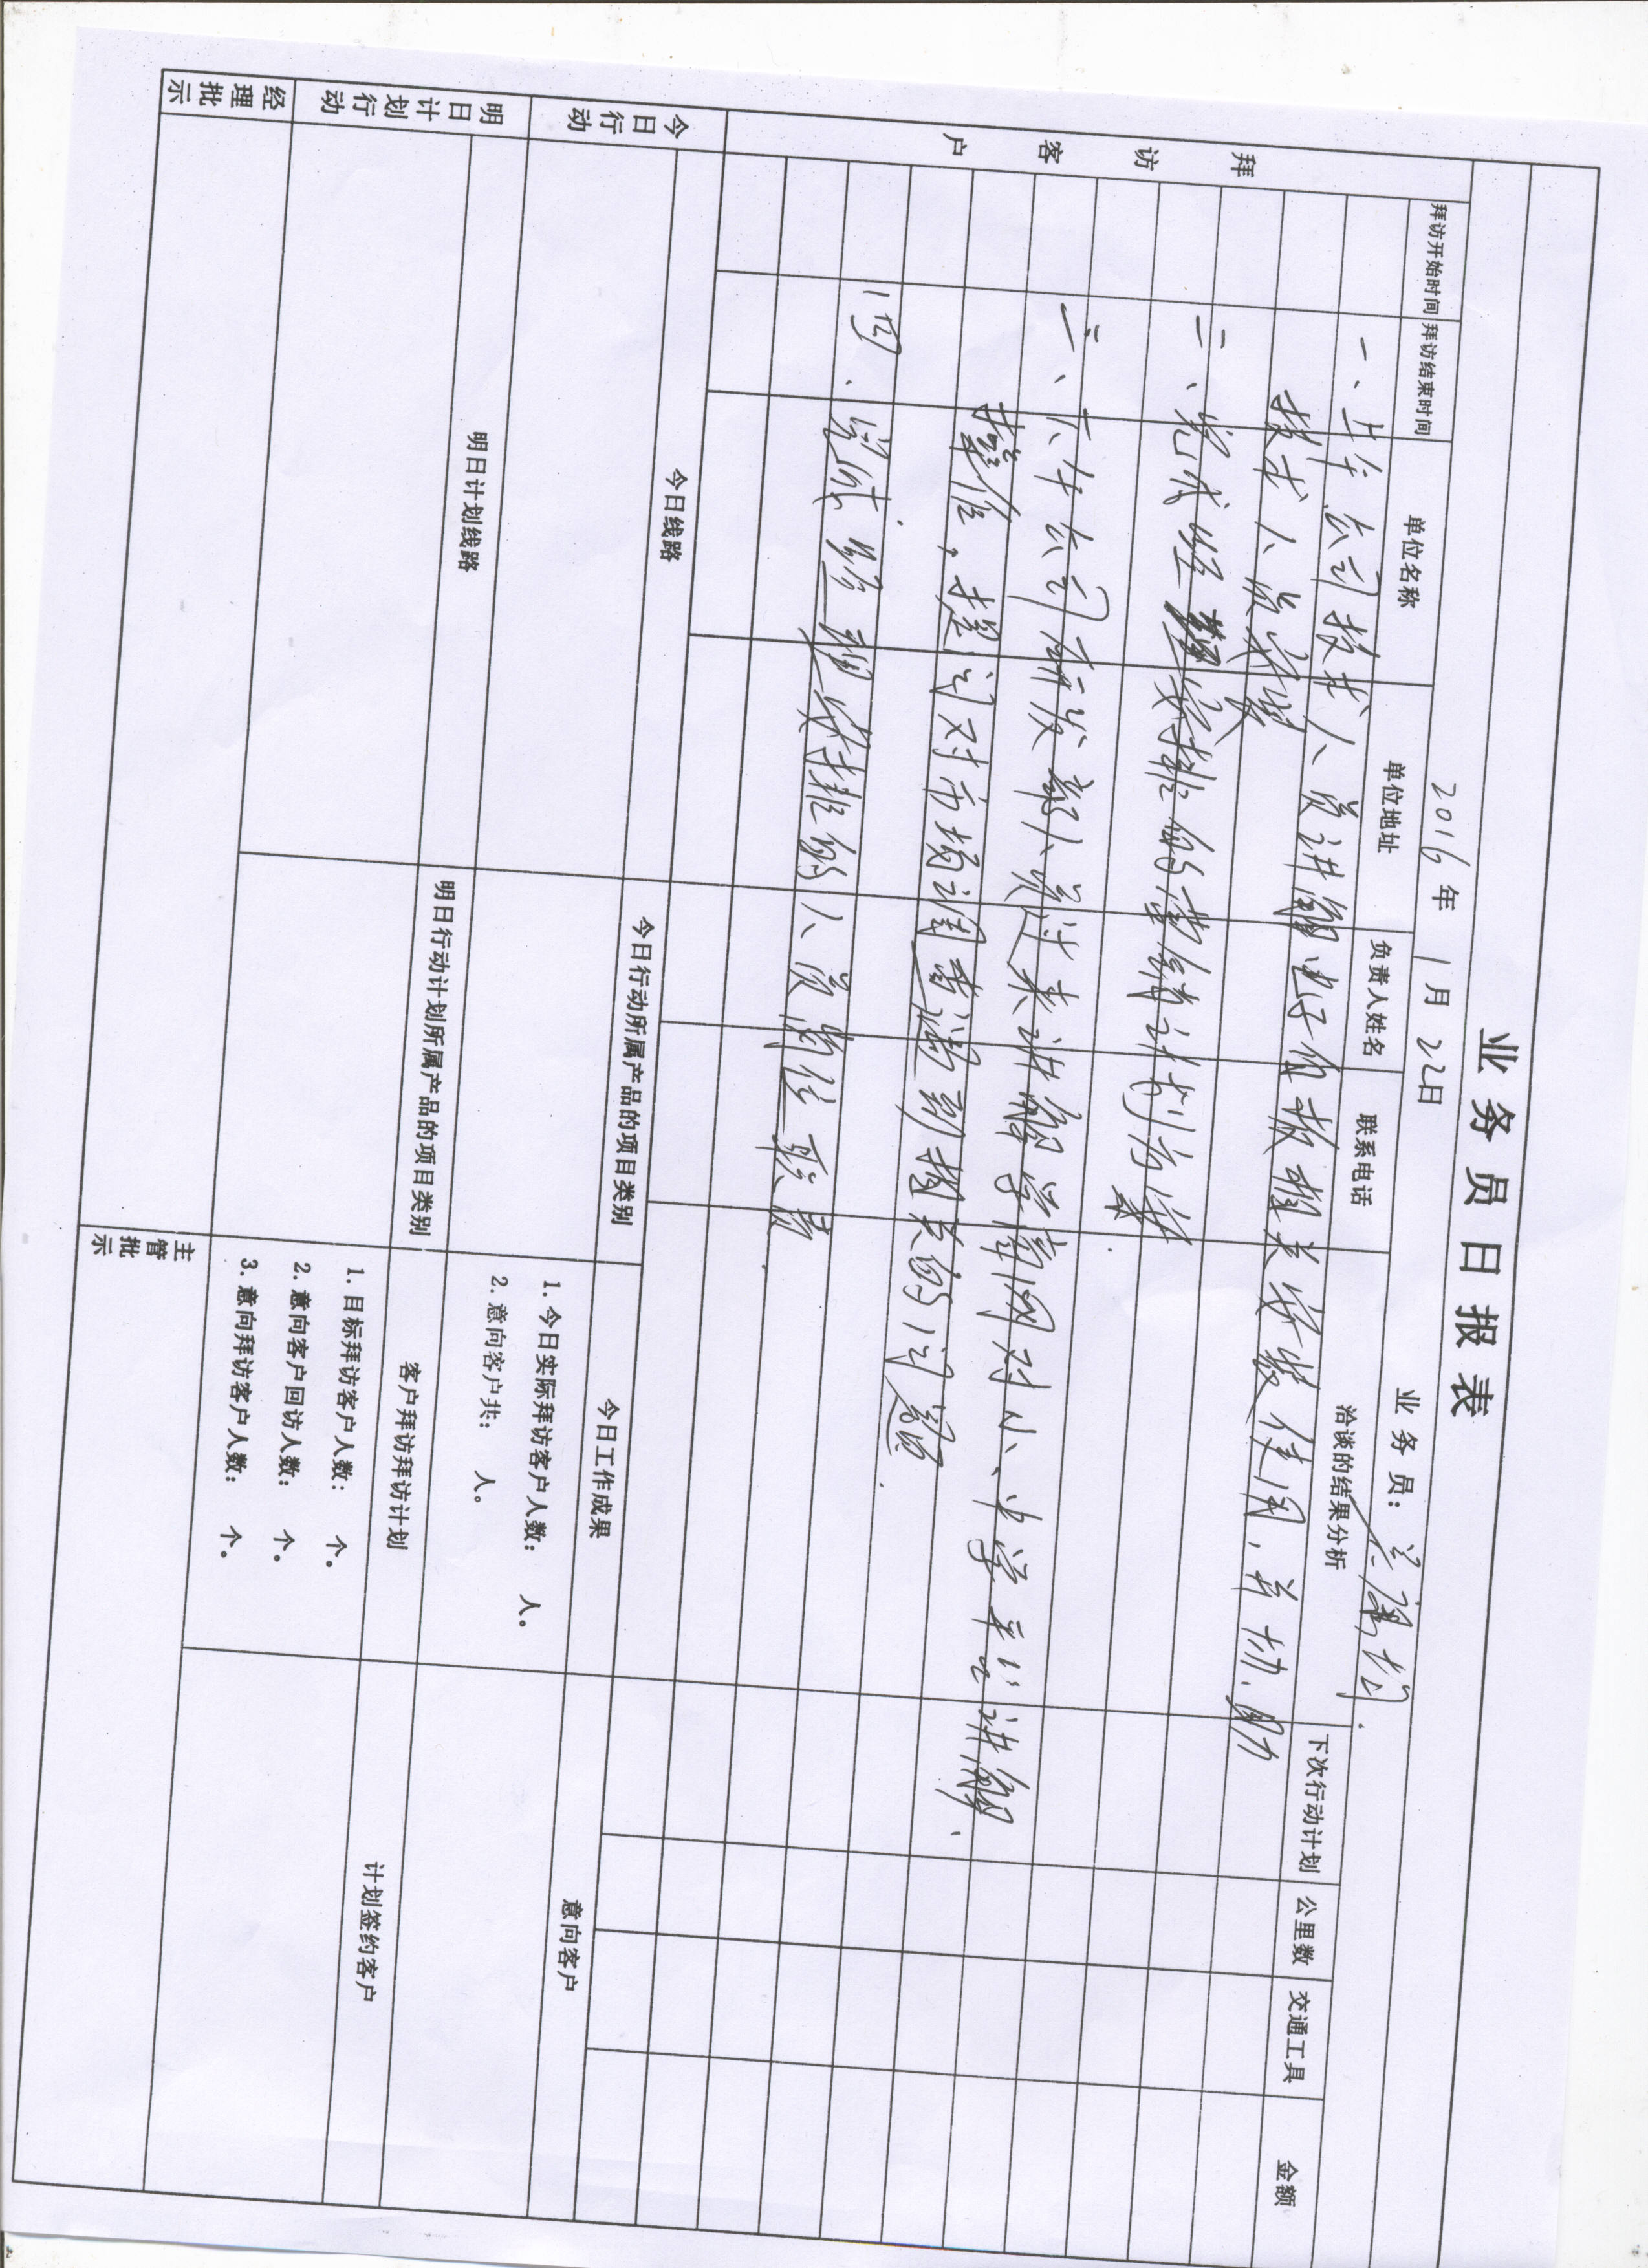 业务员日报表
2016年 1月 22日 业务员：
拜访客户
拜访开始时间 拜访结束时间 单位名称 单位地址 负责人姓名 联系电话 洽谈的结果分析 下次行动计划 公里数 交通工具 金额
一、上午公司技术人员讲解电子白板相关安装使用，并协助
技术人员安装
二、完成经理安排的营销计划方案.
三、下午公司研发部人员过来讲解学库网对小、中学平台讲解、
操作，提问对市场调查遇到相关的问题.
四、完成 经理安排的人员岗位职责.
今日行动
今日线路 今日行动所属产品的项目类别 今日工作成果 意向客户
1. 今日实际拜访客户人数： 人。
2. 意向客户共： 人。
明日计划行动
明日计划线路 明日行动计划所属产品的项目类别 客户拜访拜访计划 计划签约客户
1. 目标拜访客户人数： 个。
2. 意向客户回访人数： 个。
3. 意向拜访客户人数： 个。
经理批示
主管批示